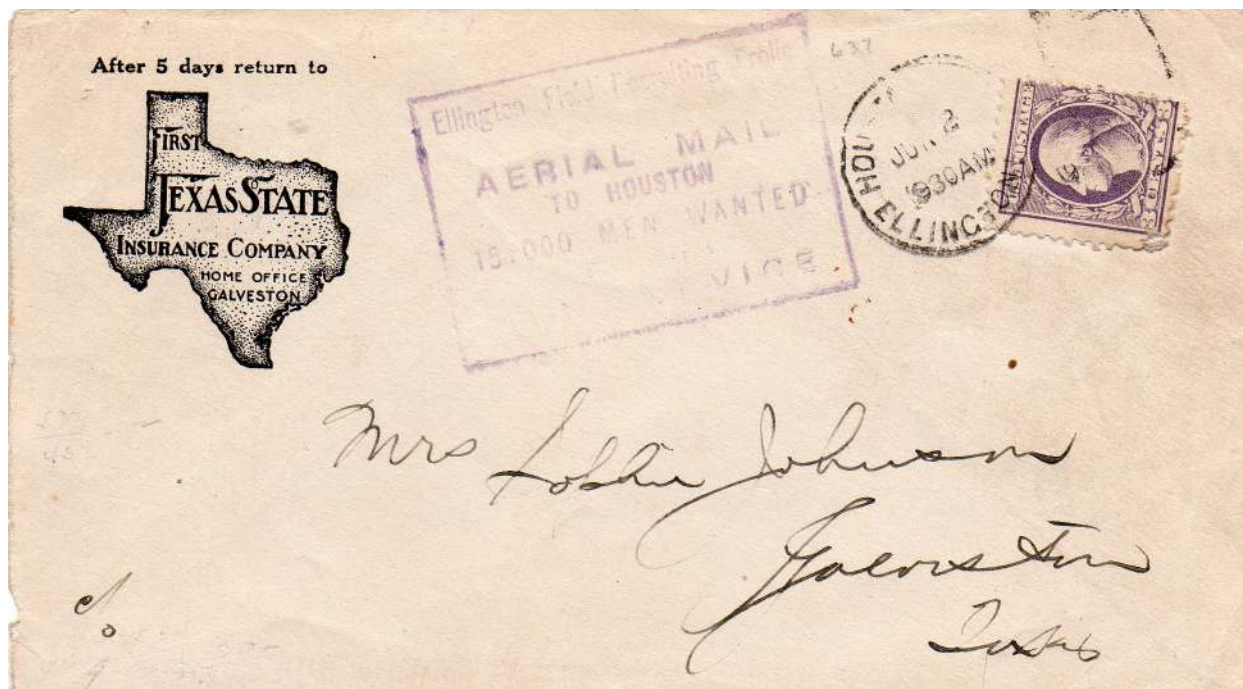 After 5 days return to
FIRST
TEXAS STATE
INSURANCE COMPANY
HOME OFFICE
GALVESTON
Ellington Field Recruiting
AERIAL MAIL
TO HOUSTON
15,000 MEN WANTED
637
JUN 2
930AM
HOU ELLINGTON
Mrs Johnson
Galveston
Texas
c/o